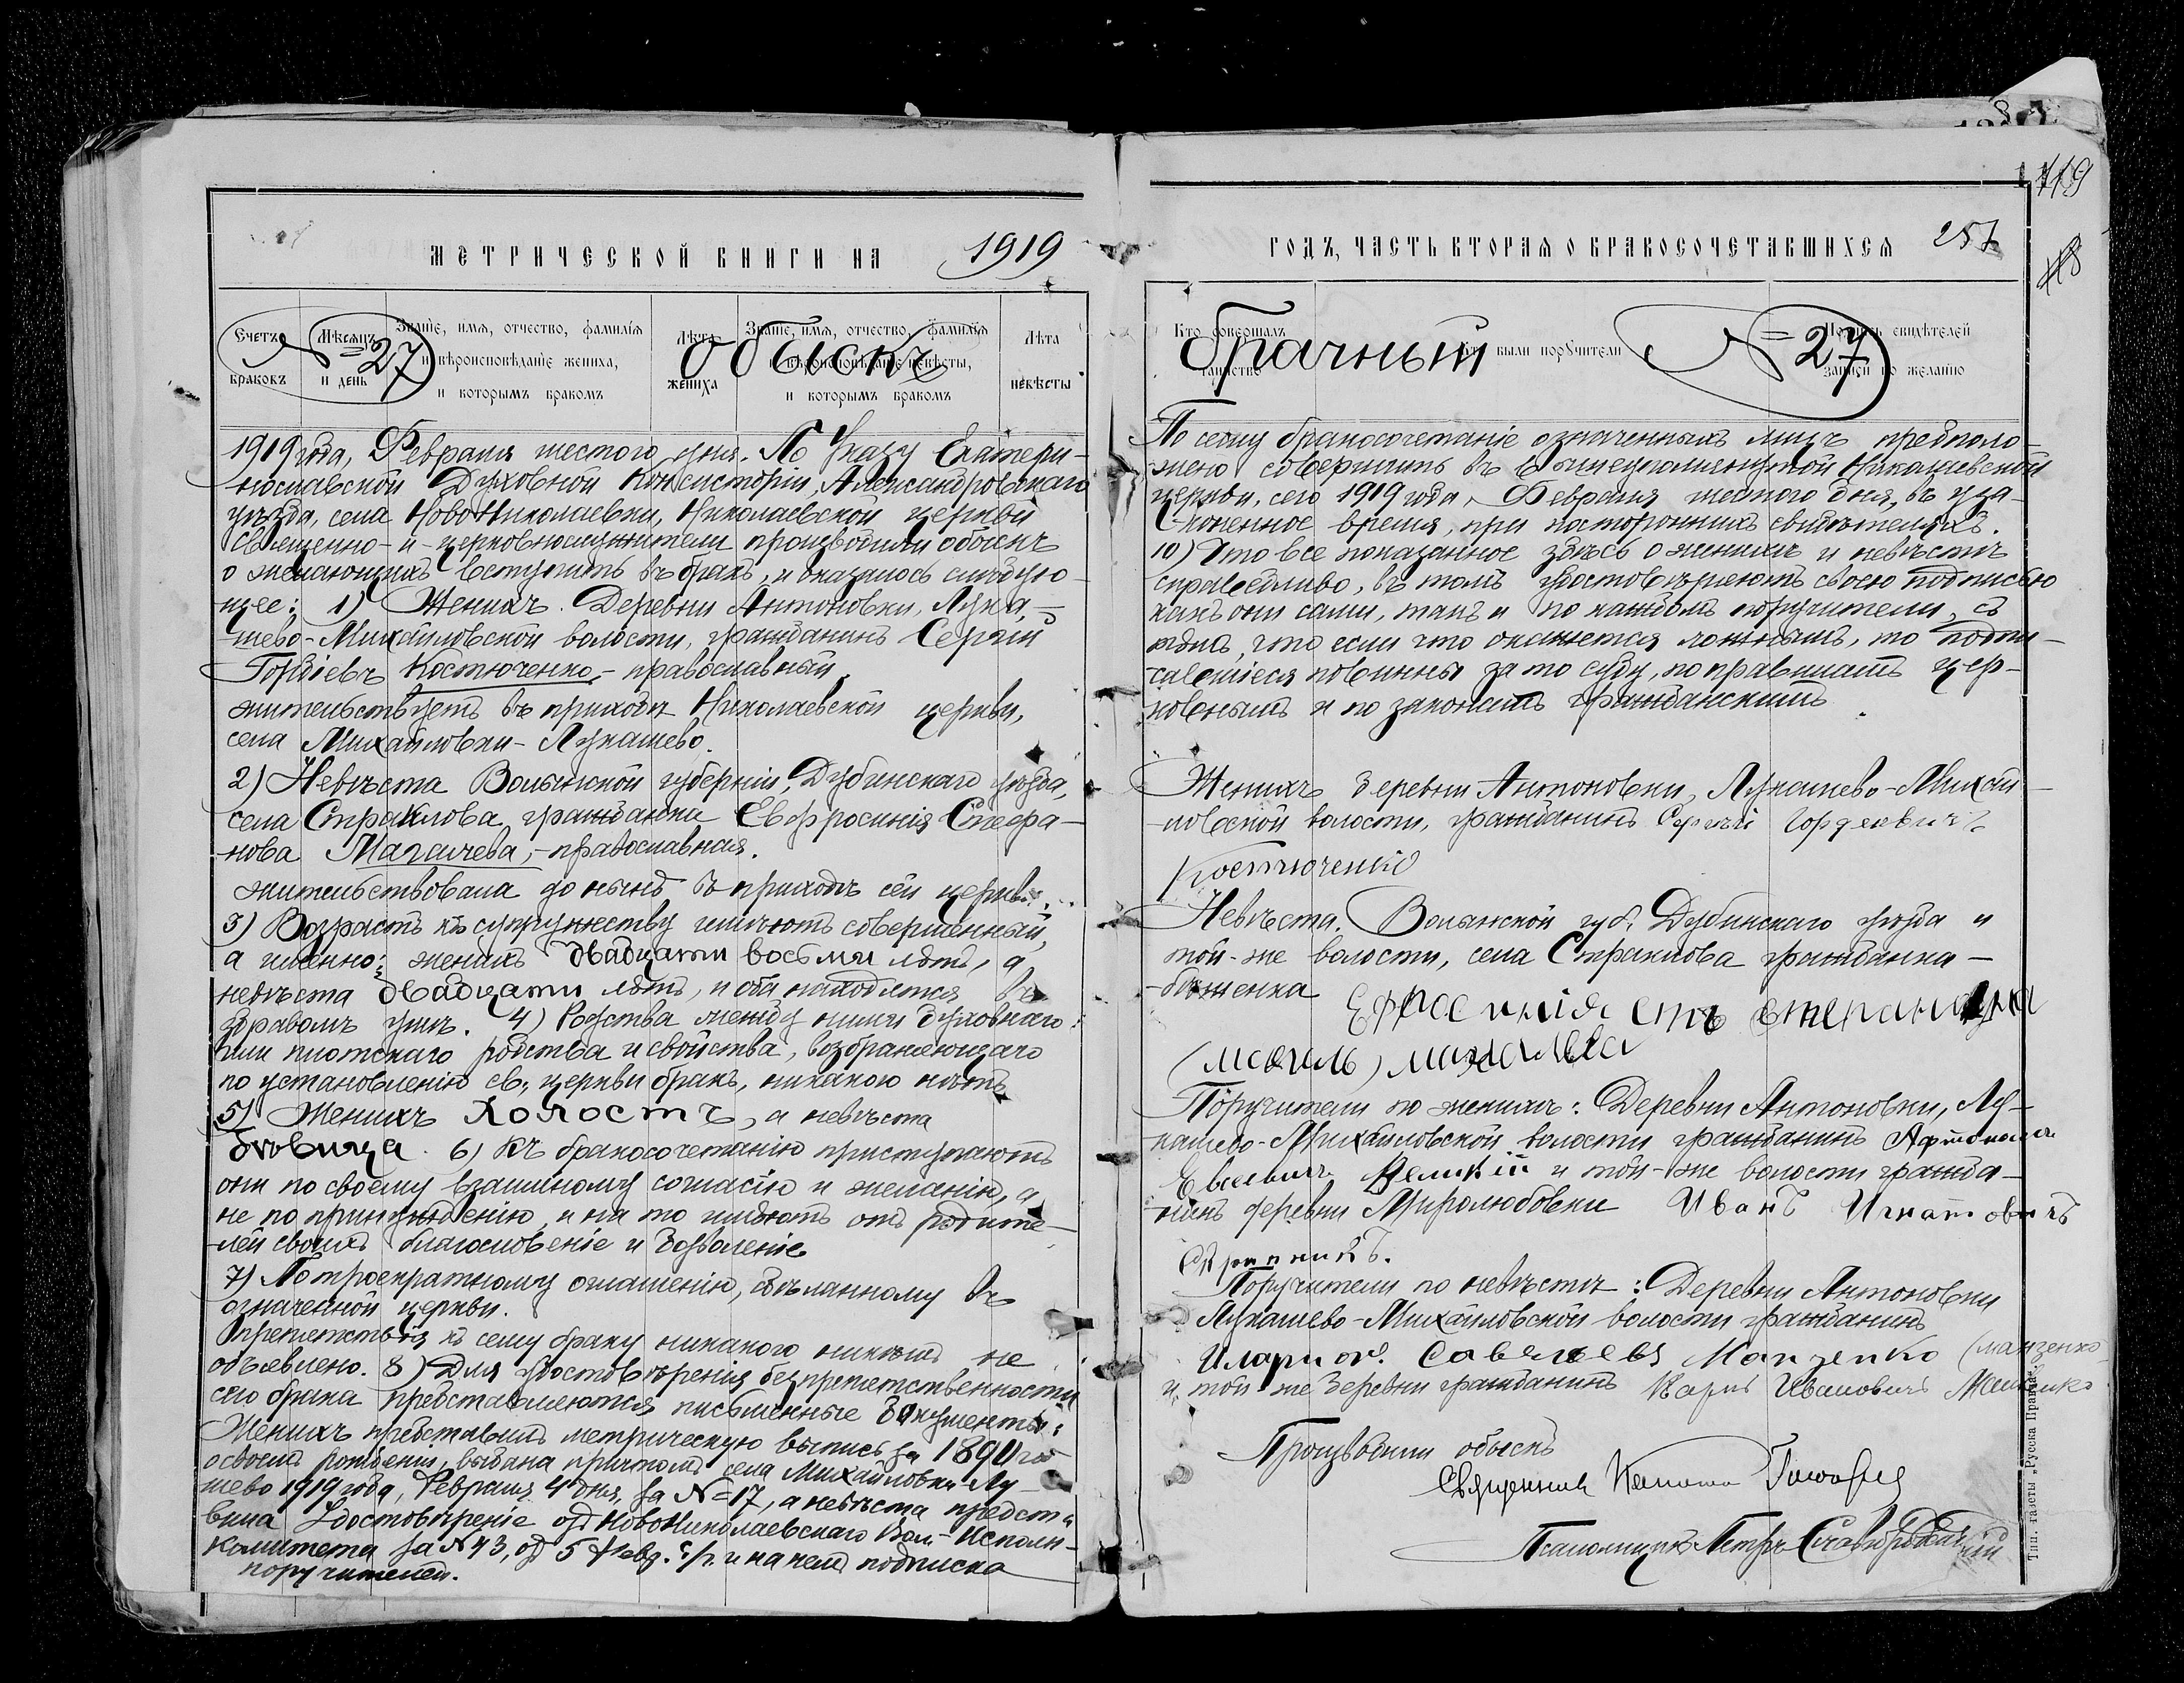 МЕТРИЧЕСКОЙ КНИГИ НА 1919
Счетъ браковъ
Мѣсяцъ и день
Званіе, имя, отчество, фамилія и вѣроисповѣданіе жениха, и которымъ бракомъ
Лѣта жениха
Званіе, имя, отчество, фамилія и вѣроисповѣданіе невѣсты, и которымъ бракомъ
Лѣта невѣсты
№ 27 Обыскъ
1919 года, Февраля шестого дня. По Указу Екатери-
нославской Духовной Консисторіи, Александровскаго
уѣзда, села НовоНиколаевки, Николаевской церкви
священно-и-церковнослужители производили обыскъ
о желающихъ вступить въ бракъ, и оказалось слѣдую-
щее: 1) Женихъ. Деревни Антоновки, Лука-
шево-Михайловской волости, гражданинъ Сергій
Гордіевъ Костюченко,- православный,
жительствуетъ въ приходѣ Николаевской церкви,
села Михайловки-Лукашево.
2) Невѣста Волынской губерніи, Дубинскаго уѣзда,
села Страклова, гражданка Евфросинія Стефа-
нова Магалева,- православная.
жительствовала до нынѣ въ приходѣ сей церкви.
3) Возрастъ къ супружеству имѣютъ совершенный,
а именно: женихъ двадцати восьми лѣтъ, а
невѣста двадцати лѣтъ, и оба находятся въ
здравомъ умѣ. 4) Родства между ними духовнаго
или плотскаго родства и свойства, возбраняющаго
по установленію св. церкви бракъ, никакого нѣтъ
5) Женихъ холостъ, а невѣста
дѣвица. 6) Къ бракосочетанію приступаютъ
они по своему взаимному согласію и желанію, а
не по принужденію, и на то имѣютъ отъ родите-
лей своихъ благословеніе и дозволеніе
7) По троекратному оглашенію, сдѣланному въ
означенной церкви.
препятствія къ сему браку никакого никѣмъ не
объявлено. 8) Для удостовѣренія безпрепятственности
сего брака представляются письменные документы:
Женихъ представилъ метрическую выпись за 1890 го
о своемъ рожденіи, выдана причтомъ села Михайловки Лу-
шево 1919 года, Февраля 4 дня, за №=17, а невѣста предста
вила Удостовѣреніе отъ НовоНиколаевскаго Вол-Исполн-
Комитета за №43, отъ 5 Февр. с/г. и на немъ подписка
поручителей.
119
118
ГОДЪ, ЧАСТЬ ВТОРАЯ О БРАКОСОЧЕТАВШИХСЯ 257
Кто совершалъ таинство
Кто были поручители
Подпись свидѣтелей записи по желанію
Брачный № 27
По сему бракосочетаніе означенныхъ лицъ предполо-
жено совершить въ вышеупомянутой Николаевской
церкви, сего 1919 года, Февраля шестого дня, въ уза-
коненное время, при постороннихъ свидѣтеляхъ.
10) Что все показанное здѣсь о женихѣ и невѣстѣ
справедливо, въ томъ удостовѣряютъ своею подписью
какъ они сами, такъ и по каждомъ поручители, съ
тѣмъ, что если что окажется ложнымъ, то подпи-
савшіеся повинны за то суду, по правиламъ цер-
ковнымъ и по законамъ гражданскимъ.
Женихъ деревни Антоновки, Лукашево-Михай-
ловской волости, гражданинъ Сергѣй Гордеевичъ
Костюченко
Невѣста. Волынской губ. Дубинскаго уѣзда и
той-же волости, села Страклова гражданка-
бѣженка
Поручители по женихѣ: Деревни Антоновки, Лу-
кашево-Михайловской волости гражданинъ Афтономъ
Евсевичъ Великій и той-же волости гражда-
нинъ деревни Миролюбовки Иванъ Игнатовичъ
Скрипникъ.
Поручители по невѣстѣ: Деревни Антоновки
Лукашево-Михайловской волости гражданинъ
Иларион Савельевъ Манзенко (манзенко
и той же деревни гражданинъ Карпъ Ивановичъ
Производили обыскъ
Священникъ
Псаломщикъ Петръ
Тип. газеты „Русска Правда".